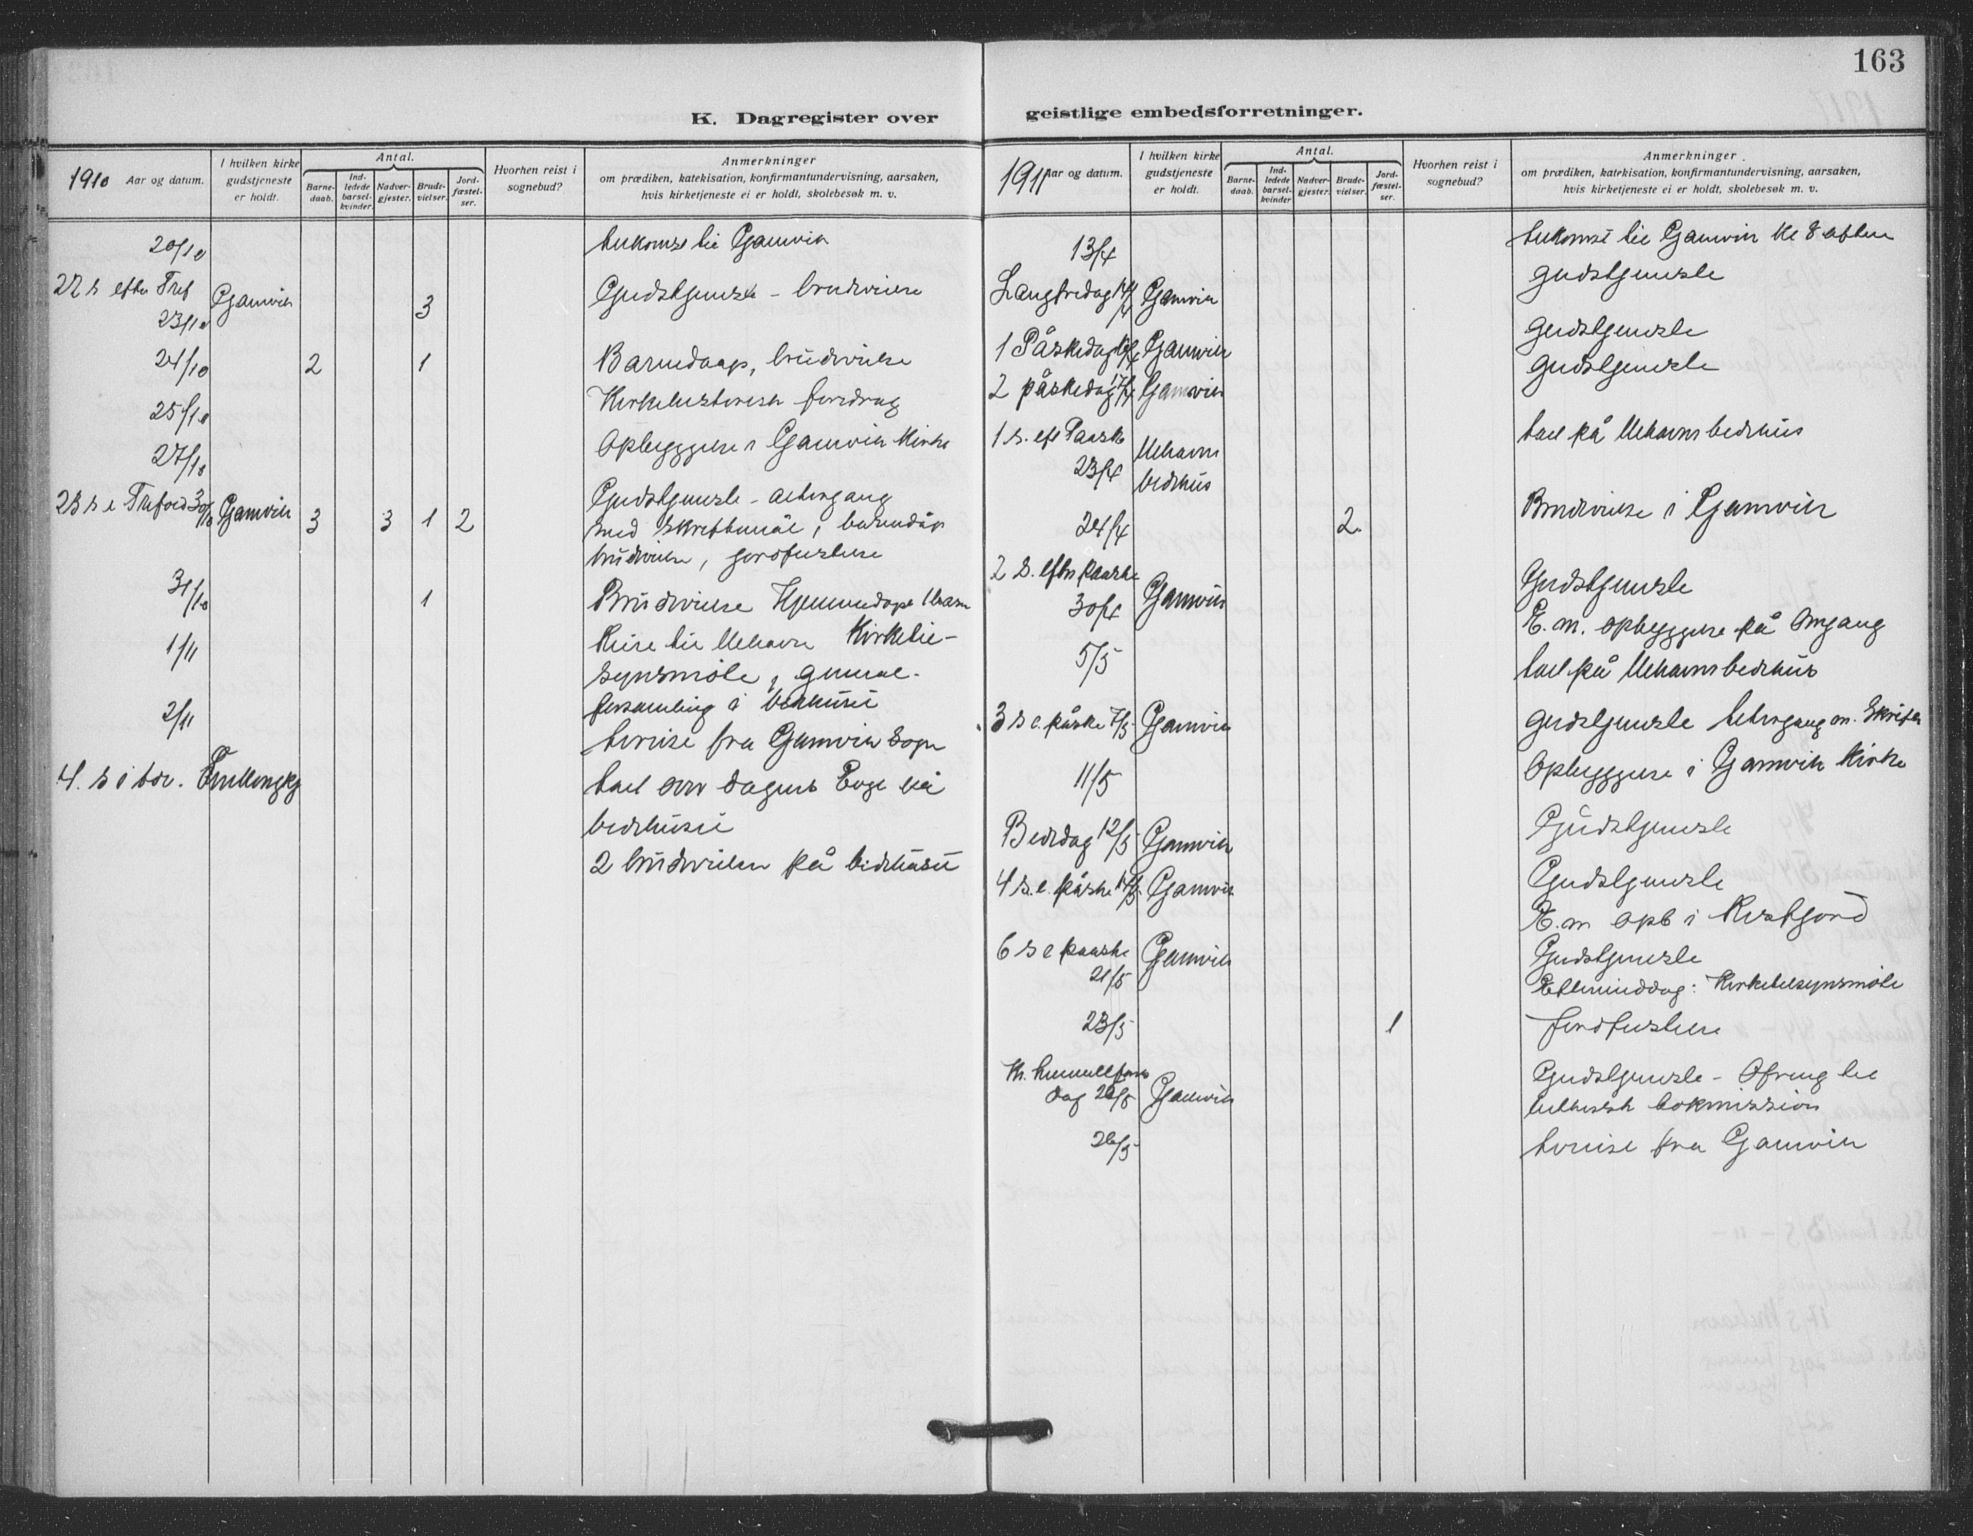 163
K. Dagregister over
geistlige embedsforretninger.
1910 Aar og datum.
I hvilken kirke
gudstjeneste
er holt.
Antal.
Barne-
daab.
Ind-
ledede
barsel-
kvinder.
Nadver-
gjester.
Brude-
vielser.
Jord-
fæstel-
ser.
Hvorhen reist i
sognebud?
Anmerkninger
om prædiken, katekisation, konfirmantundervisning, aarsaken,
hvis kirketjeneste ei er holdt, skolebesøk m. v.
20/10 Ankomst til Gamvik
22 s efter Tref Gamvik 3 Gudstjeneste - brudvielse
23/10
24/10 2 1 Barnedaap, brudvielse
25/10 Kirkehistorisk foredrag
27/10 Opbyggelse i Gamvik Kirke
23 s e Trefold 30/10 Gamvik 3 3 1 2 Gudstjeneste - altergang
med skriftemål, barnedåp
brudvielse, jordfestelse
31/10 1 Brudvielse Hjemmedaps
1/11 Reise til Mehavn Kirketil-
synsmøte, general-
forsamling i bedhuset
2/11 Avreise fra Gamvik Sogn
4. s i adv. tael over dagens Evgl på
bedhuset
2 brudvielser på bedhuset
1911 Aar og datum.
I hvilken kirke
gudstjeneste
er holdt.
Antal.
Barne-
daab.
Ind-
ledede
barsel-
kvinder
Nadver-
gjester.
Brude-
vielser.
Jord-
fæstel-
ser.
Hvorhen reist i
sognebud?
Anmerkninger.
om prædiken, katekisation, konfirmantundervisning, aarsaken,
hvis kirketjeneste ei er holdt, skolebesøk m. v.
13/4 Ankomst til Gamvik kl 8 aften
Langfredag 14/4 Gamvik gudstjeneste
1 Påskedag 16/4 Gamvik gudstjeneste
2 påskedag 17/4 Gamvik gudstjeneste
1 s. eft Paaske Mehavn tael på Mehavns bedehus
23/4 bedhus
24/4 2 Brudvielse i Gamvik
2 s. efter paaske Gamvik Gudstjeneste
30/4 E. m. opbyggelse på Omgang
5/5 tael på Mehavns bedhus
3 s e. påske 7/5 Gamvik gudstjeneste altergang m. skrifte
11/5 Opbyggelse i Gamvik Kirke
Bededag 12/5 Gamvik Gudstjeneste
4 s. e. påske 14/5 Gamvik Gudstjeneste
E. m opb i Kostfjord
6 s e paaske Gamvik Gudstjeneste
21/5 Ettermiddag: Kirketilsynsmøte
23/5 1 Jordfestelse
Kr. himmelfarts Gudstjeneste - Ofring til
dag 25/5 Gamvik luthersk bokmission
26/5 Avreise fra Gamvik